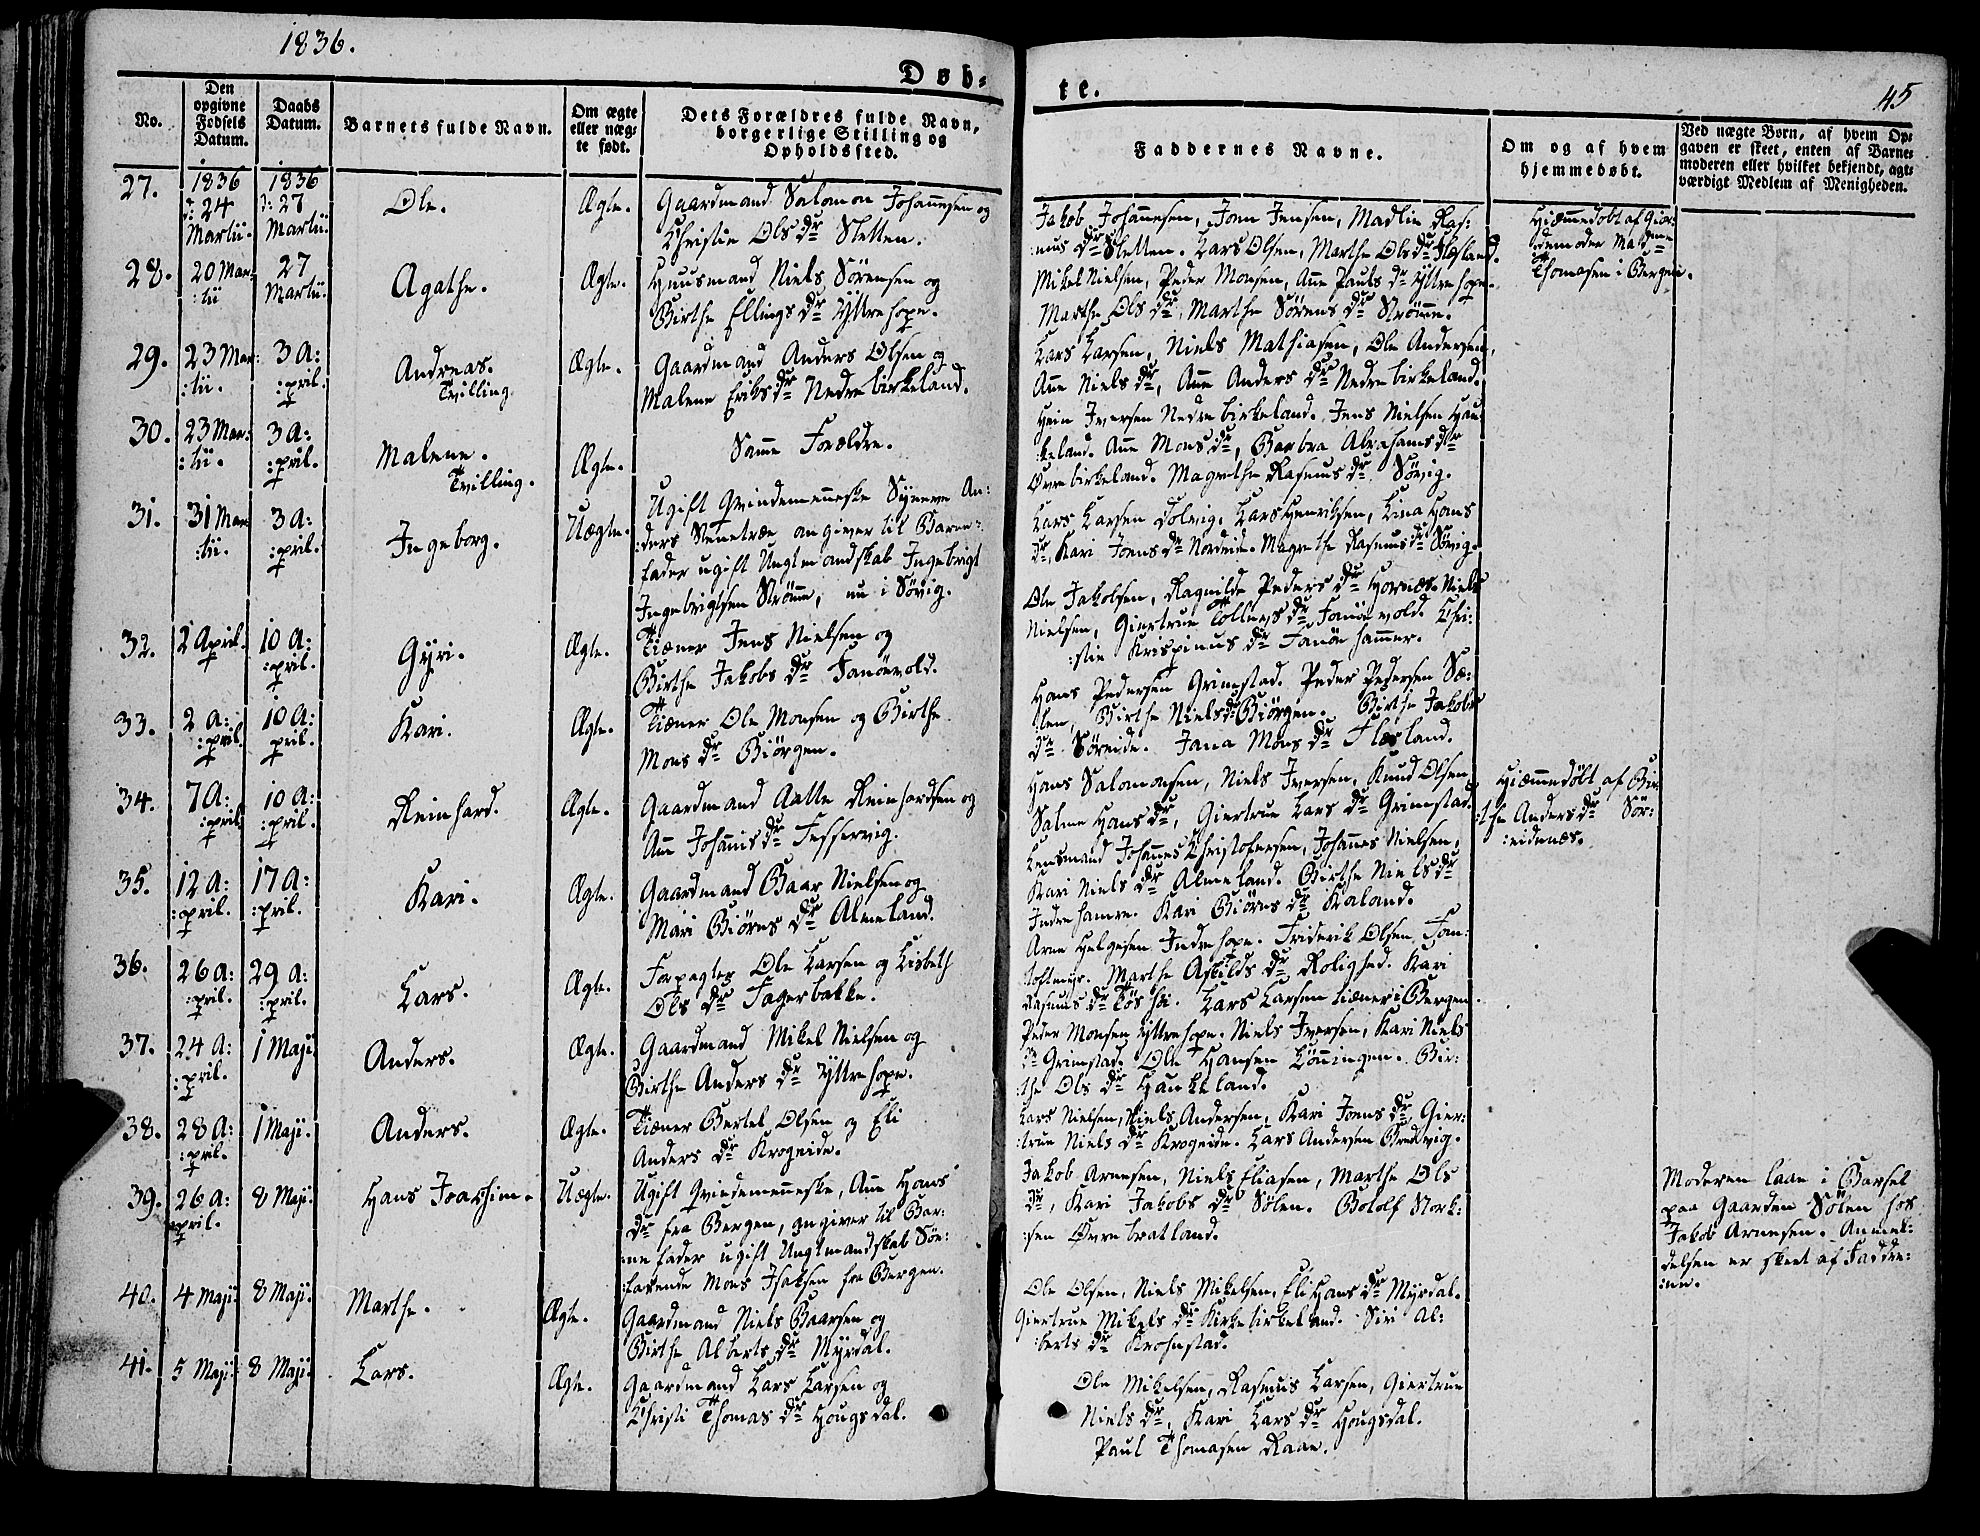 1836.
Døb=
te.
45
No.
Den opgivne Fødsels Datum.
Daabs Datum.
Barnets fulde Navn.
Om ægte eller uæg= te født.
Dets Forældres fulde Navn, borgerlige Stilling og Opholdssted.
Faddernes Navne.
Om og af hvem hjemmedøbt.
Ved uægte Børn, af hvem Op= gaven er skeet, enten af Barne= moderen eller hvilket bekjendt, agt= værdigt Medlem af Menigheden.
27.
1836
d: 24
Martii.
1836
d: 27
Martii.
Ole.
Ægte.
Gaardmand Salomon Johannesen og
Christie Olsdr Sletten.
Jakob Johannesen, Joen Jensen, Madlie Ras:
:mus dr Sletten. Lars Olsen, Marthe Olsdr Flesland.
Hiemmedøbt af Giør:
:demoder Madme
Thomasen i Bergen.
28.
20 Mar:
:tii
27
Martii.
Agathe.
Ægte.
Huusmand Niels Sørensen og
Birthe Ellings dr Yttrehope.
Mikel Nielsen, Peder Monsen, Ane Pauls dr Yttrehope.
Marthe Ols dr, Marthe Sørens dr Strømme.
29.
23 Mar:
:tii.
3 A:
:pril.
Andreas.
Tvilling.
Ægte.
Gaardmand Anders Olsen og
Malene Eriksdr Nedrebirkeland.
Lars Larsen, Niels Mathiasen, Ole Andersen,
Ane Nielsdr, Ane Anders dr Nedrebirkeland.
30.
23 Mar:
:tii.
3 A:
:pril.
Malene.
Tvilling.
Ægte.
Samme Forældre.
Hein Iversen Nedrebirkeland. Jens Nielsen Hau:
:keland. Ane Monsdr, Barbra Abrahamsdr
Øvrebirkeland. Magrethe Rasmusdr Søvig.
31.
31 Mar
:tii.
3 A:
:pril.
Ingeborg.
Uægte.
Ugift Qvindemenneske Synneve An:
:ders Stenetræe angiver til Barne:
fader ugift Ungtmandskab Ingebrigt
Ingebrigtsen Strømme, nu i Søvig.
Lars Larsen Dolvig, Lars Henriksen, Lina Hans
dr, Kari Joensdr Nordeide. Magrethe Rasmusdr Søvig.
32.
2 April.
10 A:
:pril.
Gyri.
Ægte.
Tiæner Jens Nielsen og
Birthe Jakobs dr Fanøevold.
Ole Jakobsen, Ragnilde Peders dr Hornæs. Niels
Nielsen, Giertrue Tollevs dr Fanøevold. Chri:
:stie Krispinus dr Fanøehammer.
33.
2 A:
:pril.
10 A:
pril.
Kari.
Ægte.
Tiæner Ole Monsen og Birthe
Mons dr Biørgen.
Hans Pedersen Grimstad. Peder Pedersen Sæ:
:len, Birthe Nielsdr Biørgen. Birthe Jakobs
dr Søreide. Jana Mons dr Flesland.
34.
7 A:
:pril.
10 A:
:pril.
Reinhard.
Ægte.
Gaardmand Aatte Reinhardsen og
Ane Johanisdr Tesservig.
Hans Salomonsen, Niels Iversen, Knud Olsen,
Salme Hansdr, Giertrue Lars dr Grimstad.
Hiemmedøbt af Bir:
:the Andersdr Sør:
:eidenæs.
35.
12 A:
:pril.
17 A:
:pril.
Kari.
Ægte.
Gaardmand Baar Nielsen og
Mari Biørns dr Almeland.
Lensmand Johannes Christofersen, Johannes Nielsen,
Kari Niels dr Almeland. Birthe Niels dr
Indrehamre. Kari Biørns dr Kaland.
36.
26 A:
:pril.
29 A:
:pril.
Lars.
Ægte.
Forpagter Ole Larsen og Lisbeth
Ols dr Fagerbakke.
Arne Helgesen Indrehope. Friderik Olsen Fan:
:toftmyr. Marthe Askilds dr Rolighed. Kari
Rasmus dr . Lars Larsen tiæner i Bergen.
37.
24 A:
:pril.
1 Maji.
Anders.
Ægte.
Gaardmand Mikel Nielsen og
Birthe Anders dr Yttrehope.
Peder Monsen Yttrehope. Niels Iversen, Kari Niels
dr Grimstad. Ole Hansen Lønningen. Bir:
:the Ols dr Haukeland.
38.
28 A:
:pril.
1 Maji.
Anders.
Ægte.
Tiæner Bertel Olsen og Eli
Anders dr Krogeide.
Lars Nielsen, Niels Andersen, Kari Joens dr, Gier:
:true Niels dr Krogeide. Lars Andersen Bredvig.
39.
26 A:
:pril.
8 Maji.
Hans Joachim.
Uægte.
Ugift Qvindemenneske, Ane Hans
dr fra Bergen, angiver til Bar:
:nefader ugift Ungtmandskab Søe:
:farende Mons Isaksen fra Bergen.
Jakob Arnesen, Niels Eliasen, Marthe Ols
dr, Kari Jakobs dr Sølen. Botolf Stork:
:sen Øvrebratland.
Moderen laae i Barsel
paa Gaarden Sølen hos
Jakob Arnesen. Anmel:
delsen er skeet af Faddre:
:ne.
40.
4 Maji.
8 Maji.
Marthe.
Ægte.
Gaardmand Niels Baarsen og
Birthe Alberts dr Myrdal.
Ole Olsen, Niels Mikelsen, Eli Hans dr Myrdal.
Giertrue Mikels dr Kirkebirkeland. Siri Al:
:berts dr Krohnstad.
41.
5 Maji.
8 Maji.
Lars.
Ægte.
Gaardmand Lars Larsen og
Christi Thomas dr Hougsdal.
Ole Mikelsen, Rasmus Larsen, Giertrue
Niels dr, Kari Lars dr Hougsdal.
Paul Thomasen Raae.